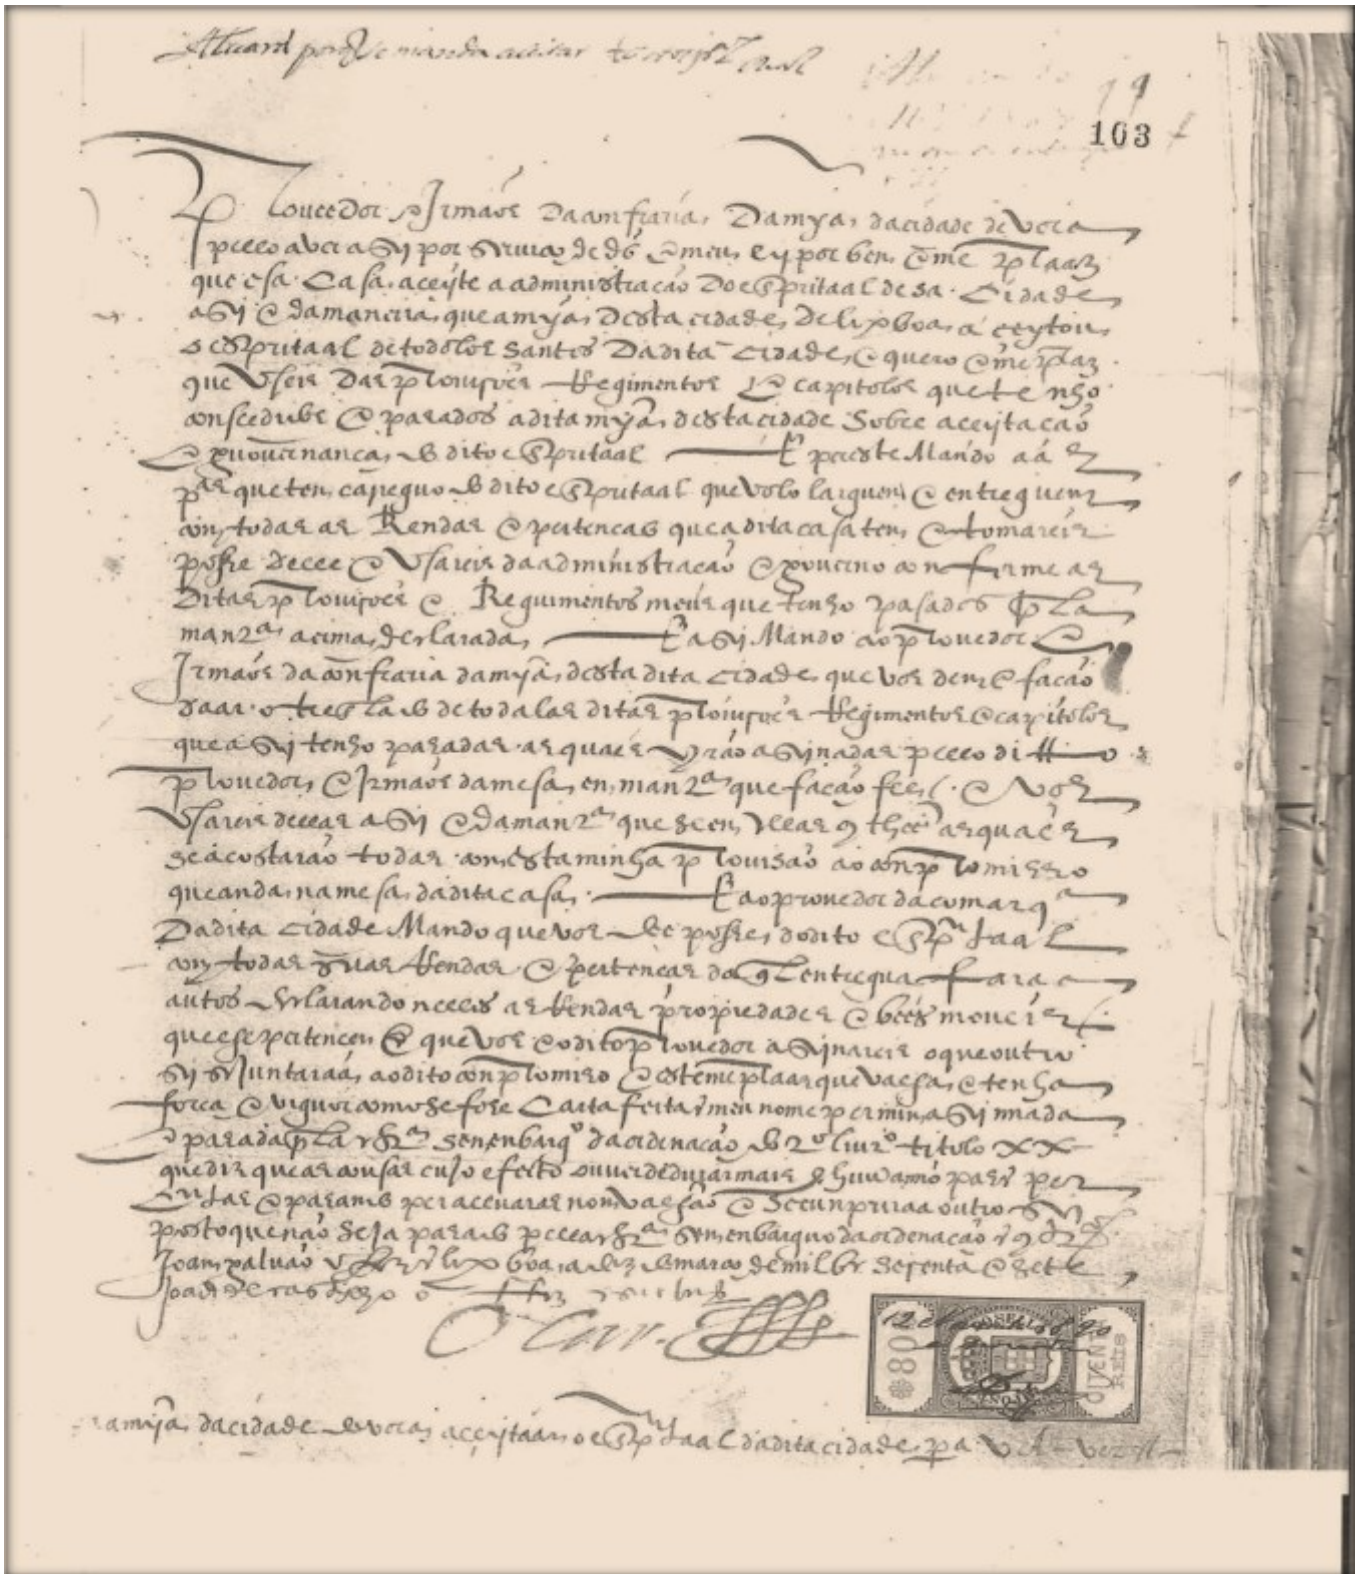 Alvará porq se manda aceitar
103
Provedor e Irmãos da comfraria Da mya da cidade devora
pello aver asy por serviço de ds e meu ey por bem e me praaz
que esa Casa aceyte a administração Do espritaal desa Cidade
asy e da maneira que a mya desta cidade de lixboa aceytou
o espritaal de todolos santos Da dita cidade e quero e me praz
que useis Das provisões Regimentos e capitolos que tenho
comsedidos e pasados a dita mya desta cidade sobre aceytacão
e governanca do dito espritaal E per este Mando aa
que tem carreguo do dito espritaal que volo larguem e entreguem
com todas as Rendas e pertencas que a dita casa tem e tomareis
pose delle e Usareis da administração e governo conforme as
Ditas provisões e Reguimentos meus que tenho pasados pla
manra acima declarada E asy Mando ao provedor e
Irmãos da comfraria da mya desta dita cidade que vos dem e facão
daar o treslado de todalas ditas provisões Regimentos e capitolos
que asy tenho pasadas as quaes yrão asinadas pello ditto
provedor e Irmãos da mesa em manra que facão fee e vos
Usareis dellas asy e da manra que se em ellas as quaes
se acostarão todas com esta minha provisão ao compromisso
que anda na mesa da dita casa E ao provedor da comarqa
Da dita cidade Mando que vos de pose do dito espritaal
com todas suas Rendas e pertencas da ql entregua fara
autos declarando nelles as Rendas propiedades e bees moveis
que ese pertencem E que vos e o dito provedor asynareis o que outro
sy se Juntaraa ao dito compromiso e este me praz que valha e tenha
forca e vigor como se fose Carta feita em meu nome per mim asynnada
e pasada pla chra sem embarguo da ordenacão do 2º livro titolo xx
que diz que as cousas cujo efecto ouver de durar mais de hum anno pasem per
Cartas e pasando per alvaras nom valhão e se cunprira outro sy
posto que não seja pasado pella chra sem embarguo da ordenacão
Joam galvão a fez em lixboa a dez de marco de mil bc sesenta e sete
o fez escrever
O Car. Iffte
12 Março 1890
80
OITENTA REIS
a mya da cidade devora aceytar o espritaal da dita cidade pa